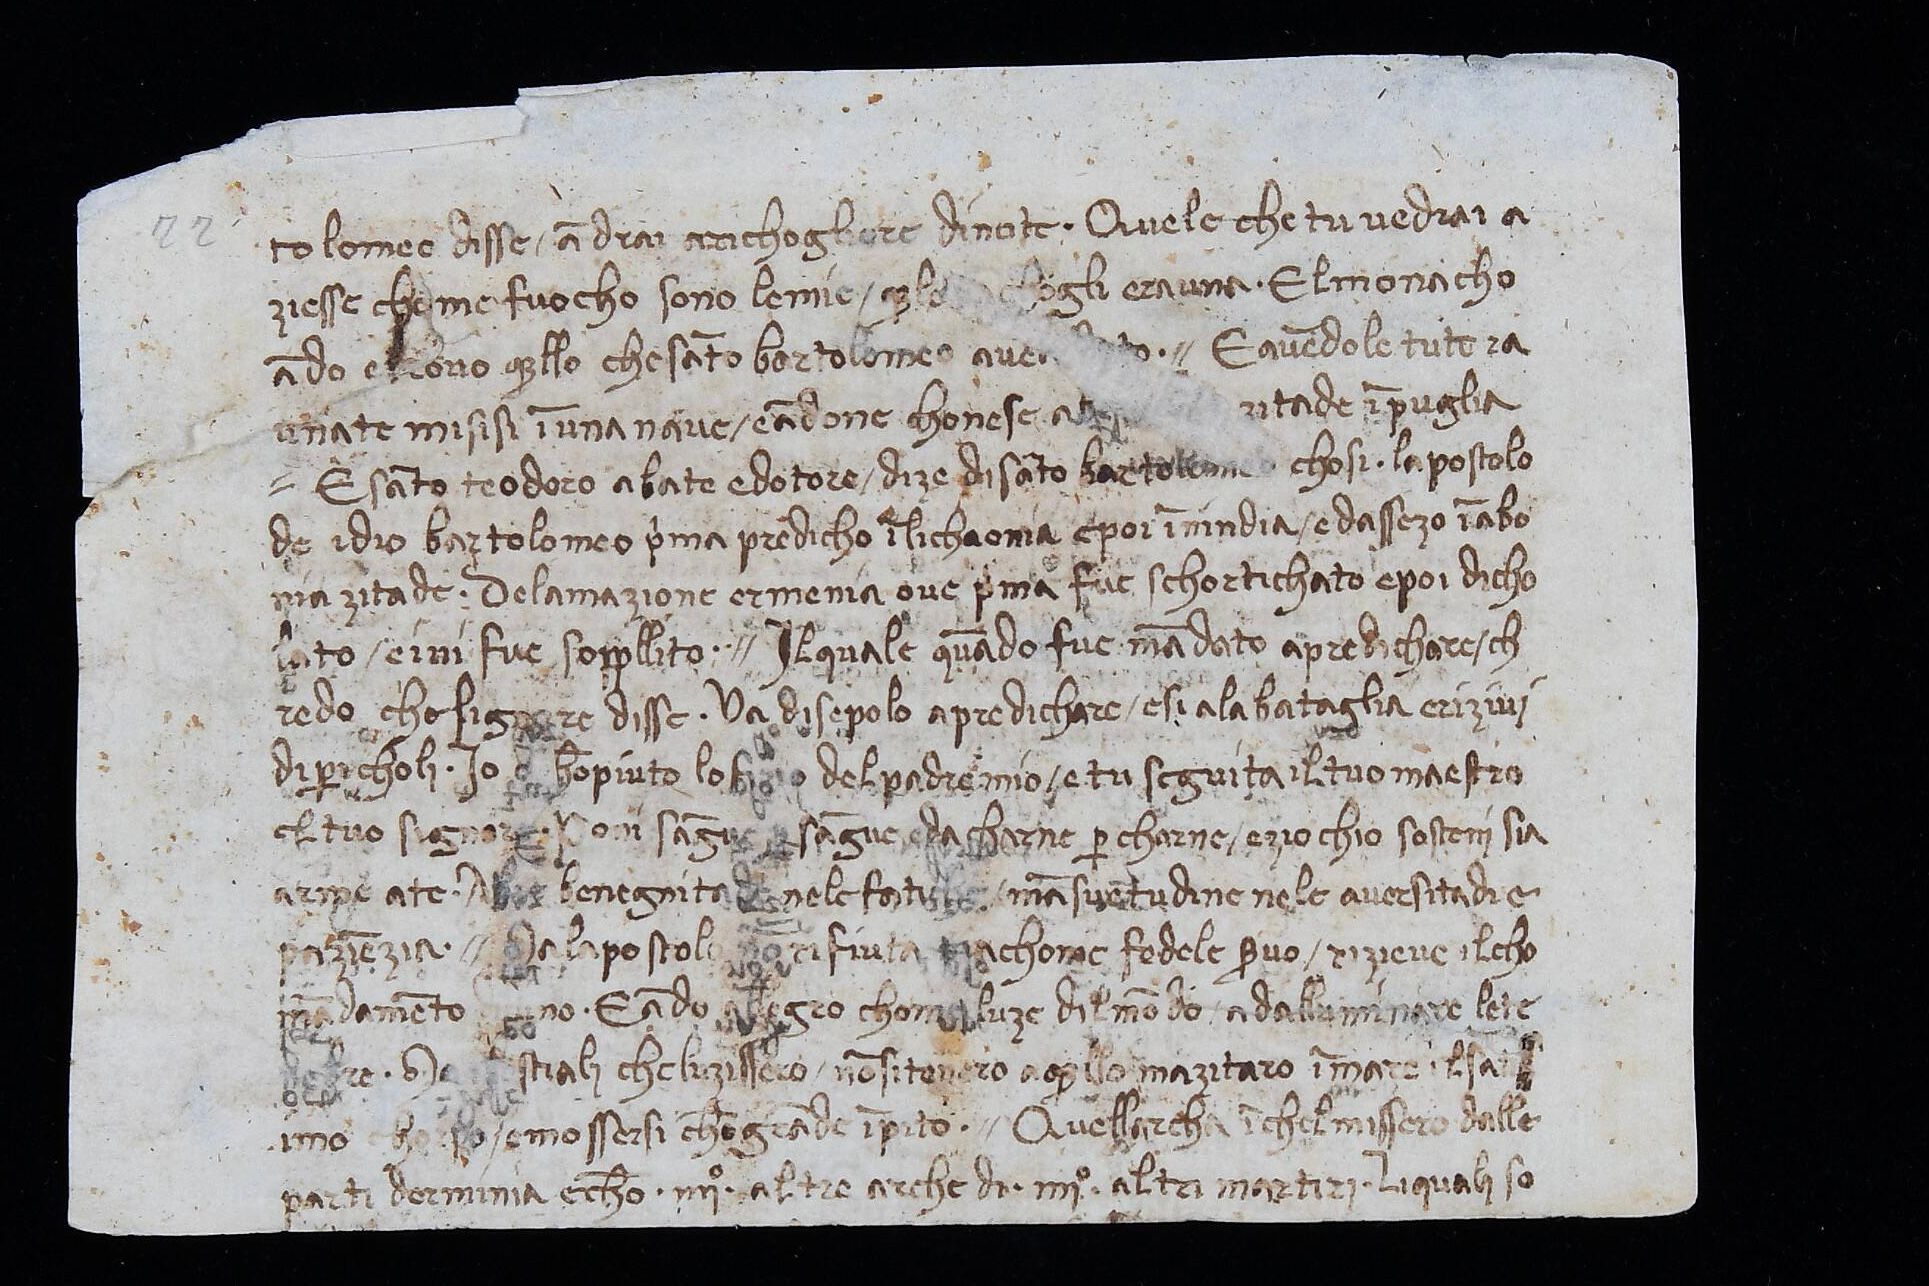 22
tolomeo disse / ādrai arichogliere dinote · Quele che tu vedrai a
ziesse chome fuocho sono lemie / ogli erauna · Elmonacho
ādo etrovo qllo che sāto bartolomeo // E auēdole tute ra
unate misisi ī una naue / e ādone chonese zitade ī puglia
// E sāto teodoro abate edotore / dize di sāto bartolomeo chosi · lapostolo
de idio bartolomeo p̍ma predicho ī lichaonia epoi ī nindia / e dassezo ī albo
nia zitade · Delamazione ermenia oue p̍ma fue schortichato epoi dicho
lato / e iui fue sopllito · // Il quale quādo fue mādato apredichare / ch
redo che signore disse · Va disepolo apredichare / esi ala bataglia erizivi
di p̱icholi · Io hopiuto lo del padre mio / e tu seguita il tuo maestro
el tuo signore · Poni sāgue sāgue eda charne p̱ charne / eziochio sosteni sia
arme ate · benegnitade nele fatiche / māsuetudine nele auersitadi e
paziēzia · // lapostolo rifiuta machome fedele s̱uo / rizieue il cho
mādamēto · E ādo alegro chome luze dil mōdo / adalluminare lete
stiali che luzissero / nōsitenero aqllo mazitaro ī mare il sāt
imo / emossersi chō grāde īpito · // Quellarcha ī chel missero dalle
parti dermínia echō · iiijͦ · altre arche di · iiijͦ · altri martiri · Liquali so